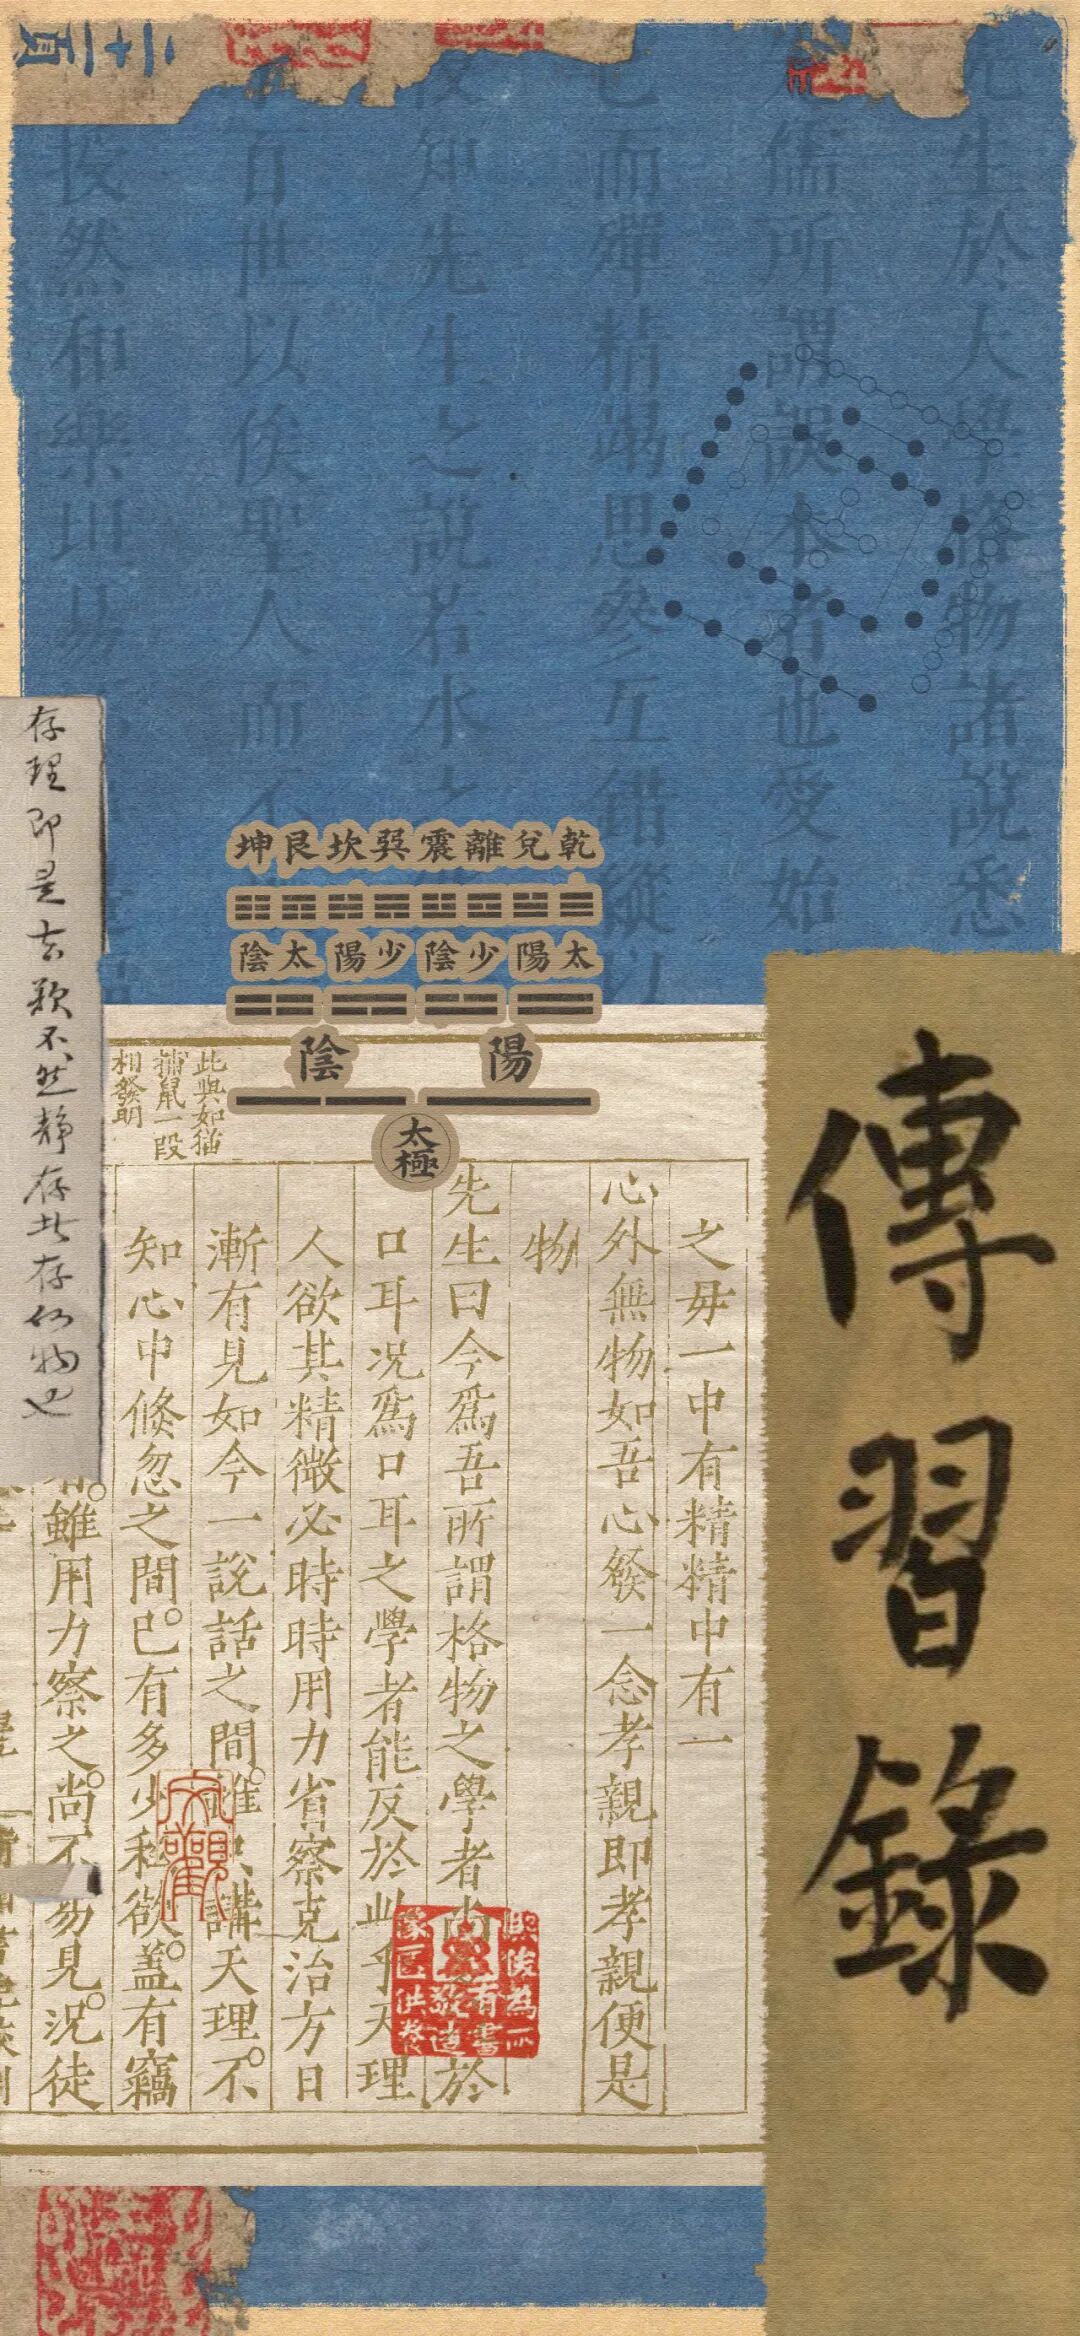 二十一頁
先生於大學格物諸說悉
儒所謂誤本者也愛始
已而殫精竭思參互錯縱以
知先生之說若水
百世以俟聖人而不
然和樂坦易
傳習錄
乾兌離震巽坎艮坤
太陽少陰少陽太陰
陽陰
太極
存理即是去欲不然静存此存何物也
此與如猫
捕鼠一段
相發明
之毋一中有精精中有一
心外無物如吾心發一念孝親即孝親便是
物
先生曰今爲吾所謂格物之學者尚 於
口耳況爲口耳之學者能反於此乎天理
人欲其精微必時時用力省察克治方日
漸有見如今一說話之間 講天理不
知心中倐忽之間已有多少私欲蓋有竊
雖用力察之尚不易見況徒